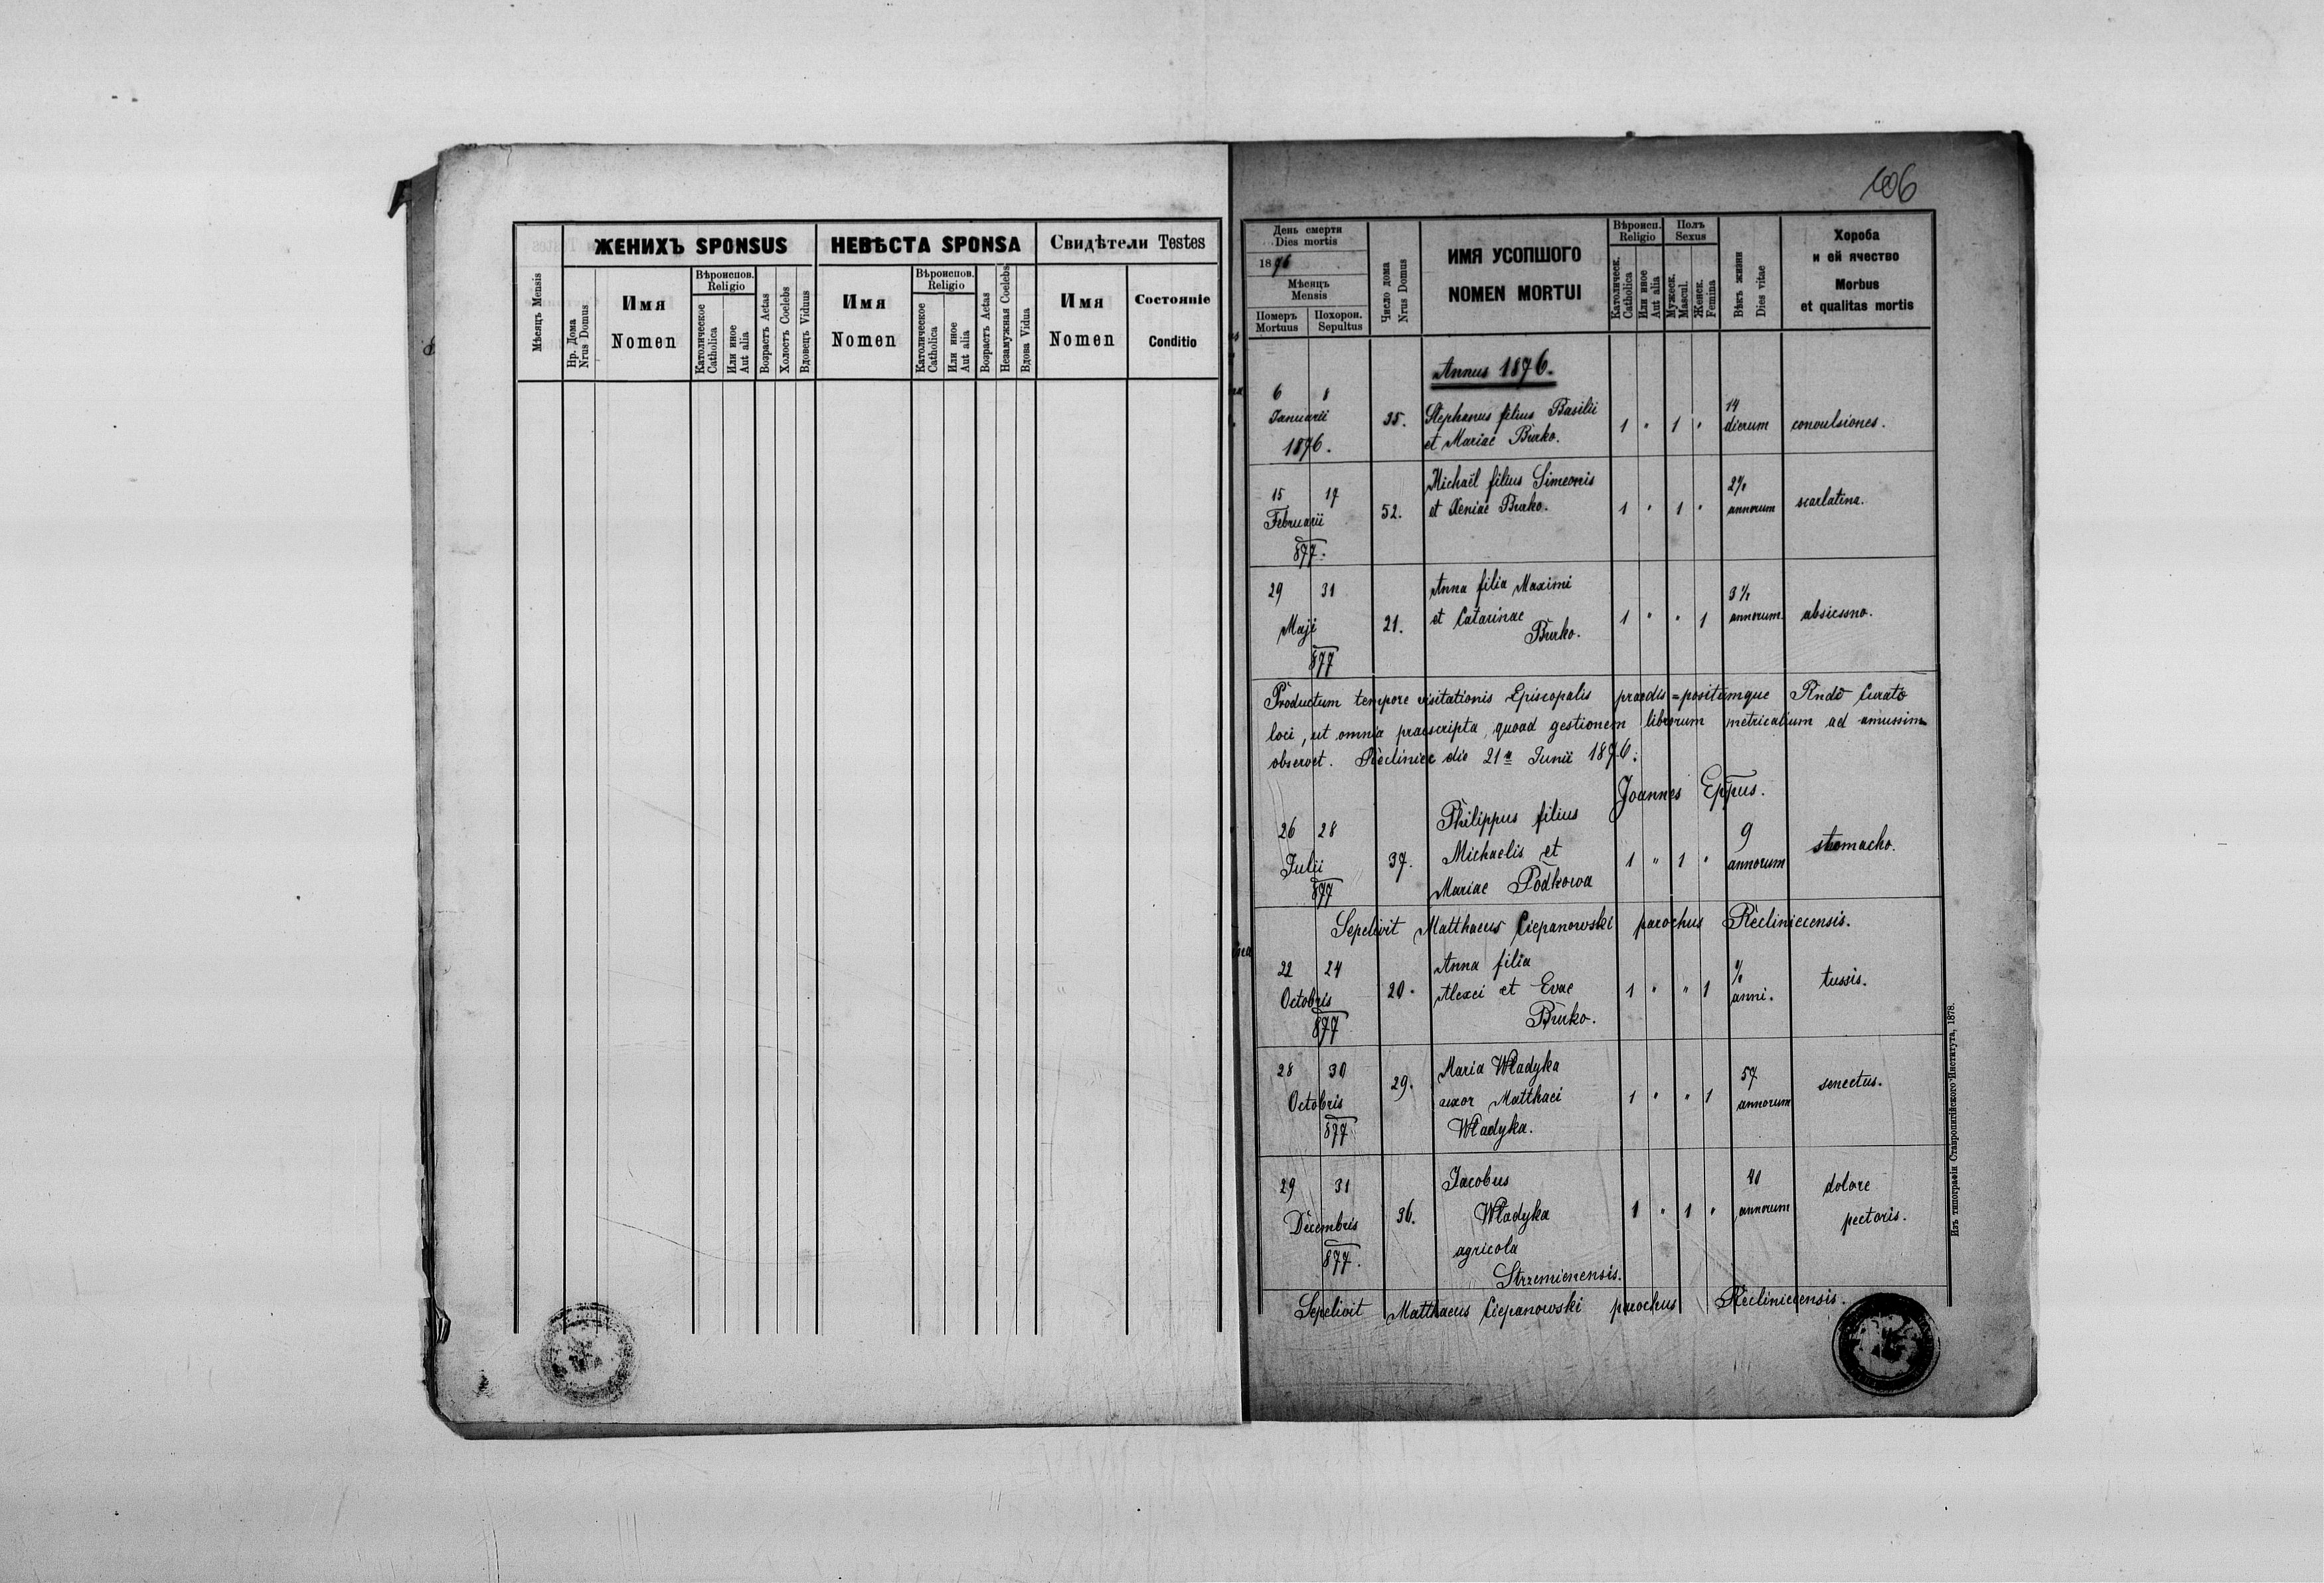 106
ЖЕНИХЪ SPONSUS
НЕВѢСТА SPONSA
Свидѣтели Testes
Мѣсяцъ Mensis
Нр. Дома
Nrus Domus
Имя
Nomen
Вѣроиспов.
Religio
Католическое
Catholica
Или иное
Aut alia
Возрастъ Aetas
Холостъ Coelebs
Вдовецъ Viduus
Имя
Nomen
Вѣроиспов.
Religio
Католическое
Catholica
Или иное
Aut alia
Возрастъ Aetas
Незамужная Coelebs
Вдова Vidua
Имя
Nomen
Состояніе
Conditio
День смерти
Dies mortis
1876
Мѣсяцъ
Mensis
Померъ
Mortuus
Похорон.
Sepultus
Число дома
Nrus Domus
ИМЯ УСОПШОГО
NOMEN MORTUI
Вѣроисп.
Religio
Католическ.
Catholica
Или иное
Aut alia
Полъ
Sexus
Мужеск.
Mascul.
Женск.
Femina
Вѣкъ жизни
Dies vitae
Хороба
и ей ячество
Morbus
et qualitas mortis
Annus 1876.
6 8
Januarii
1876.
35.
Stephanus filius Basilii
et Mariae Burko.
1 " 1 "
14
dierum
convulsiones.
15 17
Februarii
877.
52.
Michaël filius Simeonis
et Xeniae Burko.
1 " 1 "
annorum
scarlatina.
29 31
Maji
877
21.
Anna filia Maximi
et Catarinae
Burko.
1 " " 1
3 ½
annorum.
Productum tempore visitationis Episcopalis praedis=positumque Rndo Curato
loci, ut omnia praescripta, quoad gestionem librorum metricalium ad amussim
observet. Recliniec die 21 Junii 1876.
Joannes Eppus.
26 28
Julii
877
37.
Philippus filius
Michaelis et
Mariae Podkowa
1 " 1 "
9
annorum
stomacho.
Sepelivit Matthaeus Ciepanowski parochus Recliniecensis.
22 24
Octobris
877
20.
Anna filia
Alexei et Evae
Burko.
1 " " 1
½
anni.
tussis.
28 30
Octobris
877
29.
Maria Władyka
uxor Matthaei
Władyka.
1 " " 1
57
annorum
senectus.
29 31
Decembris
877.
36.
Jacobus
Władyka
agricola
Strzemienensis.
1 " 1 "
40
annorum
dolore
pectoris.
Sepelivit Matthaeus Ciepanowski parochus Recliniecensis.
Изъ типографіи Ставропигійского Института, 1878.